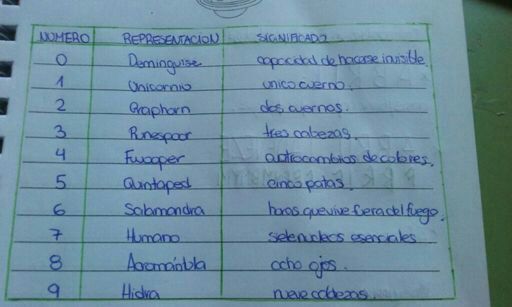 NUMERO REPRESENTACION SIGNIFICADO
0 Deminguise capacidad de hacerse invisible.
1 Unicornio unico cuerno.
2 Graphorn dos cuernos.
3 Runespoor tres cabezas.
4 Fwooper cuatro cambios de colores.
5 Quintaped cinco patas.
6 Salamandra horas que vive fuera del fuego.
7 Humano siete nucleos esenciales
8 Acromántbla ocho ojos.
9 Hidra nueve cabezas